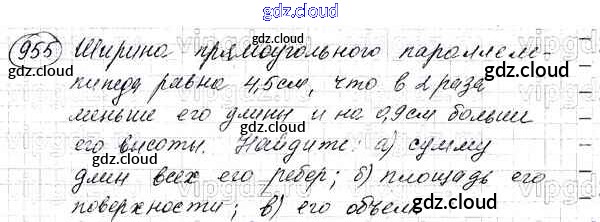 gdz.cloud
955 Ширина прямоугольного параллеле-
пипеда равна 4,5см, что в 2 раза
меньше его длины и на 0,9см больше
его высоты. Найдите: а) сумму
длин всех его ребер; б) площадь его
поверхности; в) его объем